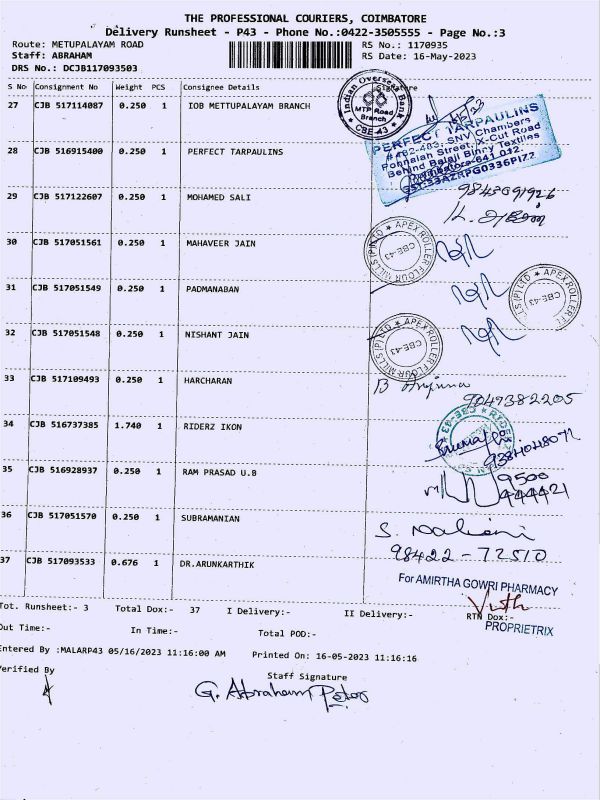 THE PROFESSIONAL COURIERS, COIMBATORE
Delivery Runsheet - P43 - Phone No.:0422-3505555 - Page No.:3
Route: METUPALAYAM ROAD RS No.: 1170935
Staff: ABRAHAM RS Date: 16-May-2023
DRS No.: DCJB117093503
S No Consignment No Weight PCS Consignee Details Signature
27 CJB 517114087 0.250 1 IOB METTUPALAYAM BRANCH
Indian Overseas Bank
MTP Road
Branch
CBE-43
28 CJB 516915400 0.250 1 PERFECT TARPAULINS
PERFECT TARPAULINS
#482-483, SNV Chambers
Ponnaiah Street, X-Cut Road
Behind Balaji Binny Textiles
Coimbatore-641 012.
29 CJB 517122607 0.250 1 MOHAMED SALI
30 CJB 517051561 0.250 1 MAHAVEER JAIN
APEX ROLLER FLOUR MILLS (P) LTD
CBE-43
31 CJB 517051549 0.250 1 PADMANABAN
APEX ROLLER FL
CBE-43
32 CJB 517051548 0.250 1 NISHANT JAIN
APEX ROLLER FLOUR MILLS (P) LTD
CBE-43
33 CJB 517109493 0.250 1 HARCHARAN
9049382205
34 CJB 516737385 1.740 1 RIDERZ IKON
35 CJB 516928937 0.250 1 RAM PRASAD U.B
9500
444421
36 CJB 517051570 0.250 1 SUBRAMANIAN
98422-72510
37 CJB 517093533 0.676 1 DR.ARUNKARTHIK
For AMIRTHA GOWRI PHARMACY
PROPRIETRIX
Tot. Runsheet:- 3 Total Dox:- 37 I Delivery:- II Delivery:- RTN Dox:-
Out Time:- In Time:- Total POD:-
Entered By :MALARP43 05/16/2023 11:16:00 AM Printed On: 16-05-2023 11:16:16
Verified By Staff Signature
G. Abraham